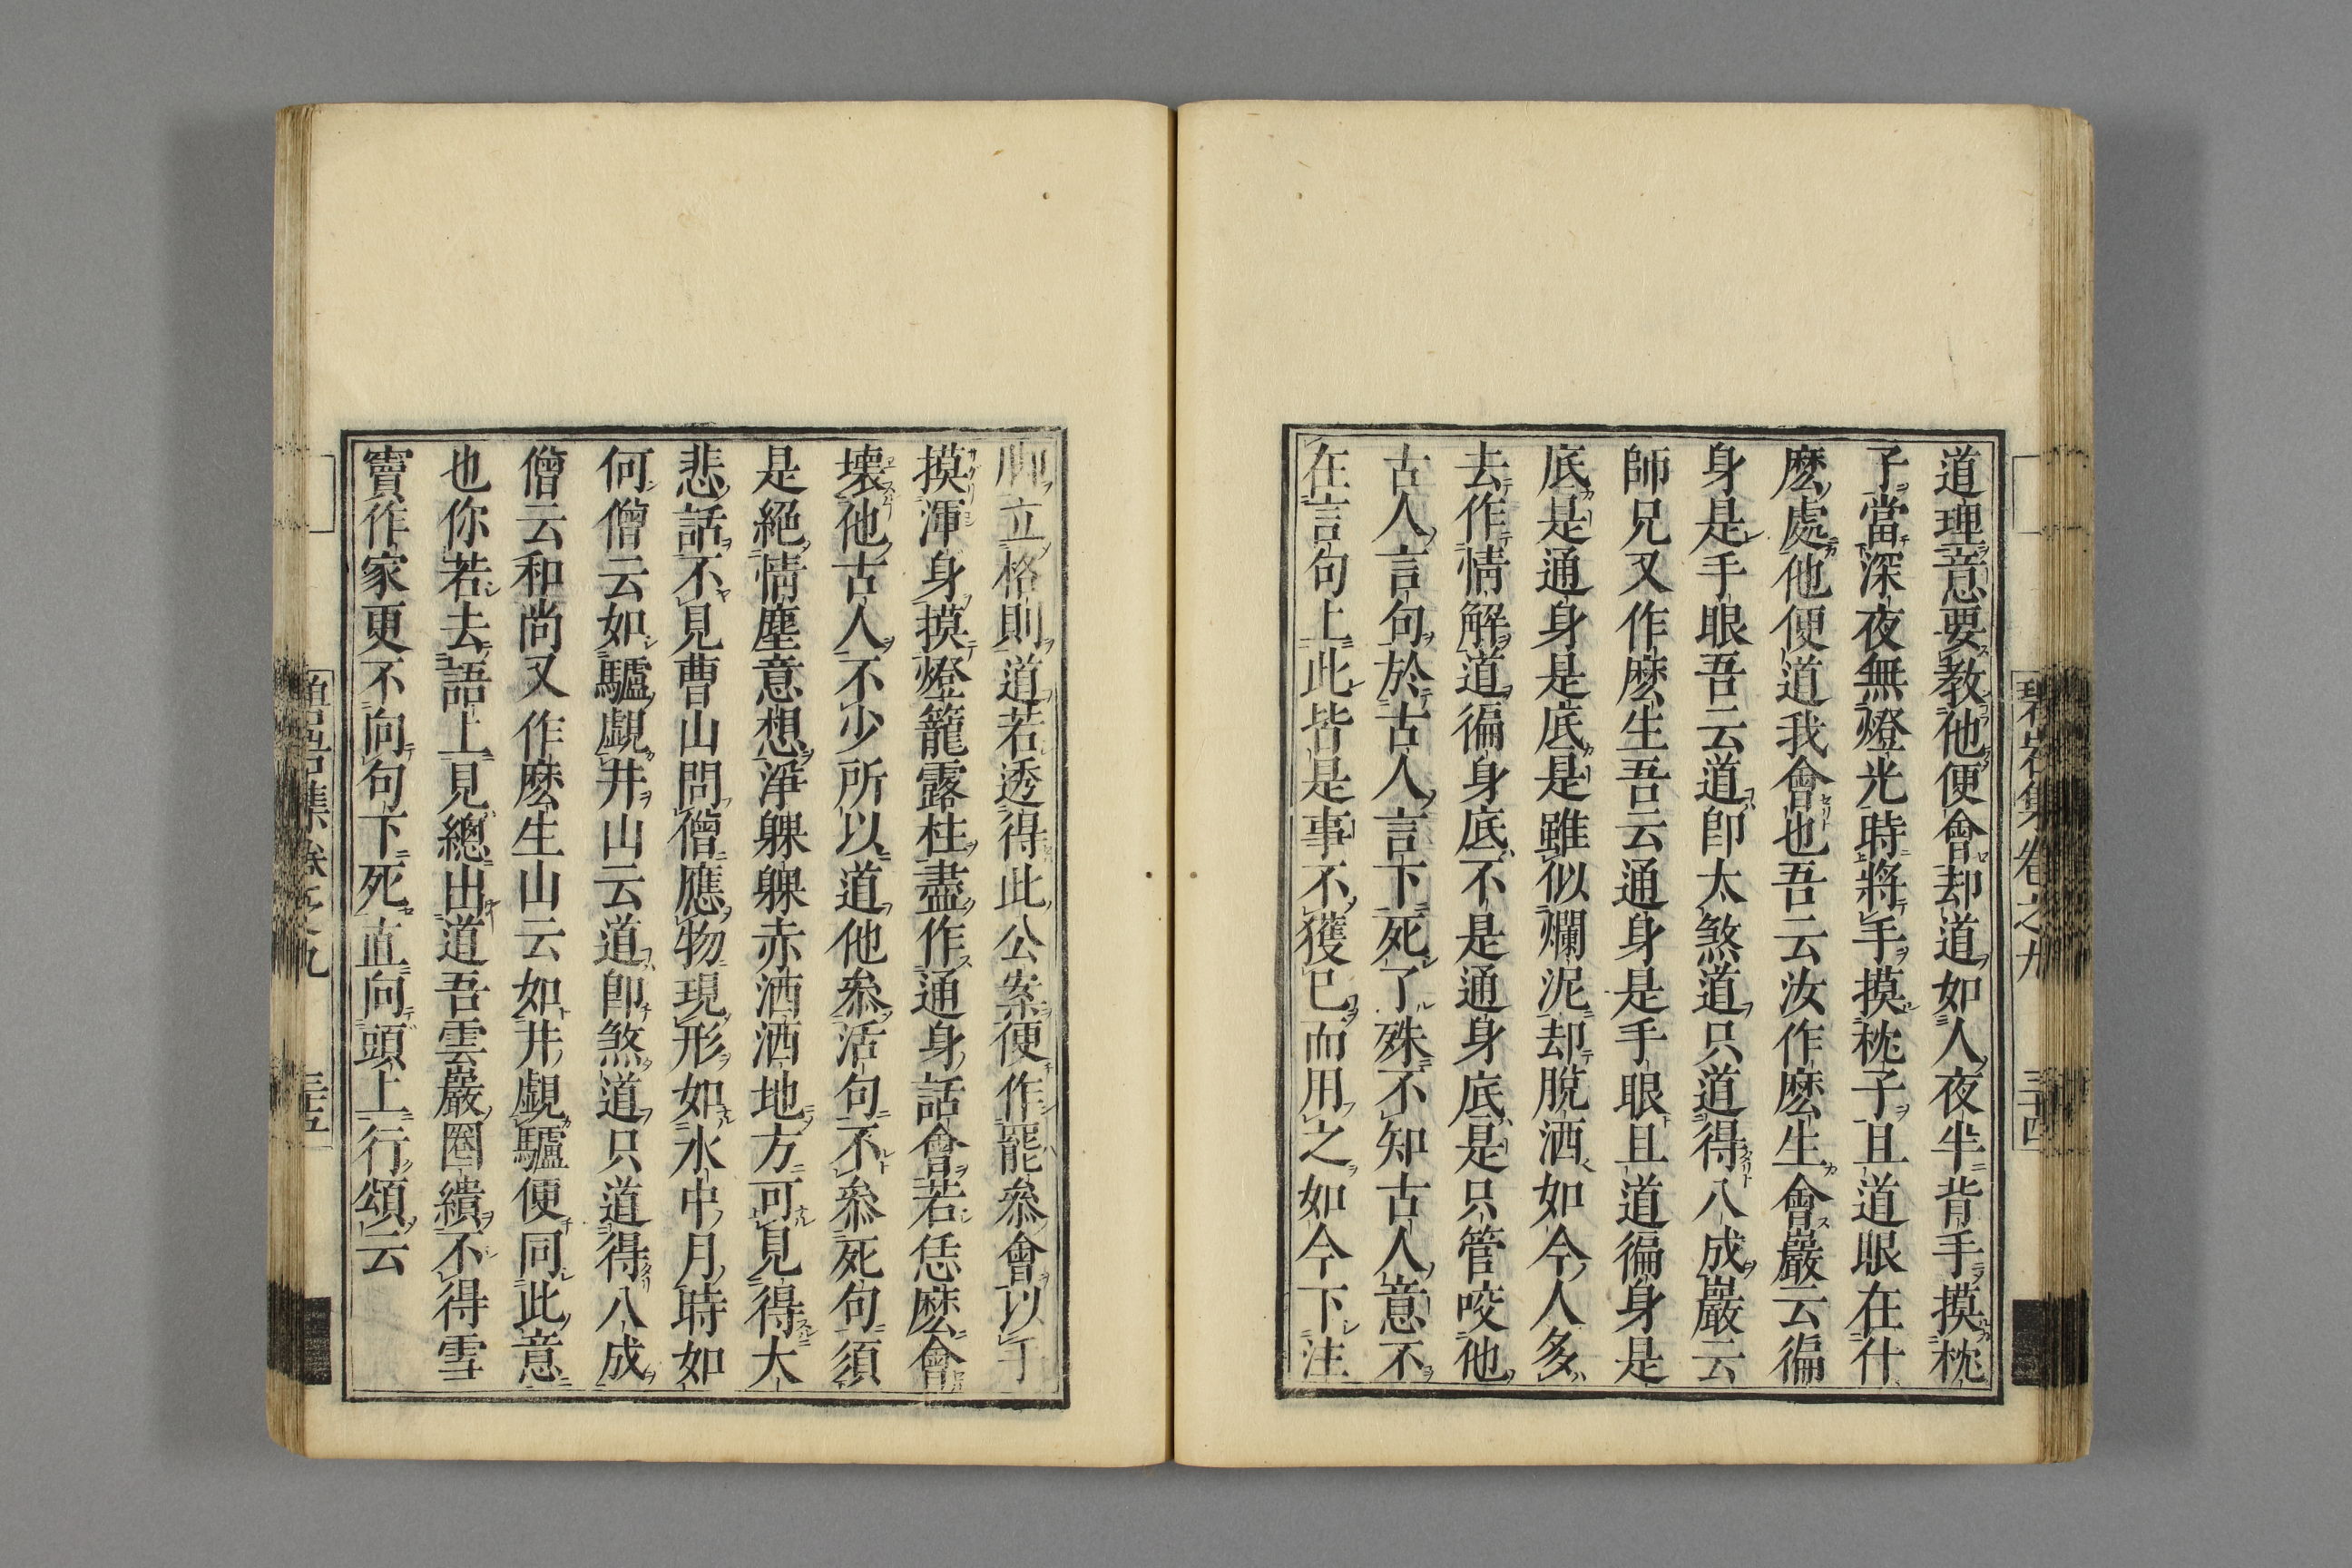 道理意要教他便會却道如人夜半背手摸枕
子當深夜無燈光時將手摸枕子且道眼在什
麽處他便道我會也吾云汝作麽生會巖云徧
身是手眼吾云道卽太煞道只道得八成巖云
師兄又作麽生吾云通身是手眼且道徧身是
底是通身是底是雖似爛泥却脫洒如今人多
去作情解道徧身底不是通身底是只管咬他
古人言句於古人言下死了殊不知古人意不
在言句上此皆是事不獲已而用之如今下注
脚立格則道若透得此公案便作罷參會以手
摸渾身摸燈籠露柱盡作通身話會若恁麽會
壞他古人不少所以道他參活句不參死句須
是絕情塵意想淨躶躶赤洒洒地方可見得大
悲話不見曹山問僧應物現形如水中月時如
何僧云如驢覰井山云道卽煞道只道得八成
僧云和尚又作麽生山云如井覰驢便同此意
也你若去語上見總出道吾雲巖圈繢不得雪
竇作家更不向句下死直向頭上行頌云
碧岩集卷之九 三十四
集卷之九 三十五